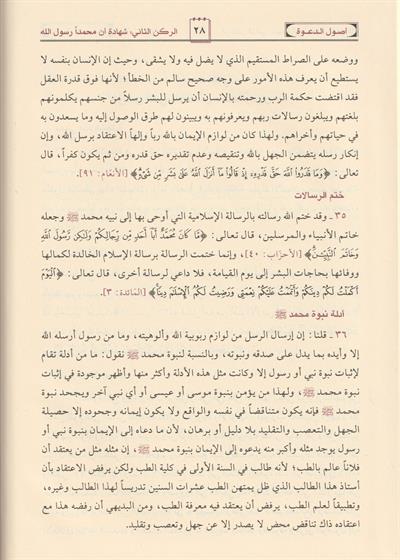 أصول الدعوة
٢٨
الركن الثاني: شهادة أن محمداً رسول الله
ووضعه على الصراط المستقيم الذي لا يضل فيه ولا يشقى، وحيث إن الإنسان بنفسه لا
يستطيع أن يعرف هذه الأمور على وجه صحيح سالم من الخطأ؛ لأنها فوق قدرة العقل
فقد اقتضت حكمة الرب ورحمته بالإنسان أن يرسل للبشر رسلاً من جنسهم يكلمونهم
بلغتهم ويبلغون رسالات ربهم ويعرفونهم به ويبينون لهم طرق الوصول إليه وما يسعدون به
في حياتهم وأخراهم. ولهذا كان من لوازم الإيمان بالله رباً وإلهاً الاعتقاد برسل الله، وإن
إنكار رسله يتضمن الجهل بالله وتنقيصه وعدم تقديره حق قدره ومن ثم يكون كفراً، قال
تعالى: ﴿وَمَا قَدَرُوا۟ ٱللَّهَ حَقَّ قَدْرِهِۦٓ إِذْ قَالُوا۟ مَآ أَنزَلَ ٱللَّهُ عَلَىٰ بَشَرٍ مِّن شَىْءٍ﴾ [الأنعام: ٩١].
ختم الرسالات
٣٥ ـ وقد ختم الله رسالته بالرسالة الإسلامية التي أوحى بها إلى نبيه محمد ﷺ وجعله
خاتم الأنبياء والمرسلين، قال تعالى: ﴿مَّا كَانَ مُحَمَّدٌ أَبَآ أَحَدٍ مِّن رِّجَالِكُمْ وَلَٰكِن رَّسُولَ ٱللَّهِ
وَخَاتَمَ ٱلنَّبِيِّـۧنَ﴾ [الأحزاب: ٤٠]، وإنما ختمت الرسالة برسالة الإسلام الخالدة لكمالها
ووفائها بحاجات البشر إلى يوم القيامة، فلا داعي لرسالة أخرى، قال تعالى: ﴿ٱلْيَوْمَ
أَكْمَلْتُ لَكُمْ دِينَكُمْ وَأَتْمَمْتُ عَلَيْكُمْ نِعْمَتِى وَرَضِيتُ لَكُمُ ٱلْإِسْلَٰمَ دِينًا﴾ [المائدة: ٣].
أدلة نبوة محمد ﷺ
٣٦ ـ قلنا: إن إرسال الرسل من لوازم ربوبية الله وألوهيته، وما من رسول أرسله الله
إلا وأيده بما يدل على صدقه ونبوته، وبالنسبة لنبوة محمد ﷺ نقول: ما من أدلة تقام
لإثبات نبوة نبي أو رسول إلا وكانت مثل هذه الأدلة وأكثر منها وأظهر موجودة في إثبات
نبوة محمد ﷺ، ولهذا من يؤمن بنبوة موسى أو عيسى أو أي نبي آخر ويجحد نبوة
محمد ﷺ فإنه يكون متناقضاً في نفسه والواقع ولا يكون إيمانه وجحوده إلا حصيلة
الجهل والتعصب والتقليد بلا دليل أو برهان، لأن ما دعاه إلى الإيمان بنبوة نبي أو
رسول يوجد مثله وأكبر منه يدعوه إلى الإيمان بنبوة محمد ﷺ، إن مثله مثل من يعتقد أن
فلاناً عالم بالطب؛ لأنه طالب في السنة الأولى في كلية الطب ولكن يرفض الاعتقاد بأن
أستاذ هذا الطالب الذي ظل يمتهن الطب عشرات السنين تدريساً لهذا الطالب وغيره،
وتطبيقاً لعلم الطب، يرفض أن يعتقد فيه معرفة الطب، ومن البديهي أن رفضه هذا مع
اعتقاده ذاك تناقض محض لا يصدر إلا عن جهل وتعصب وتقليد.